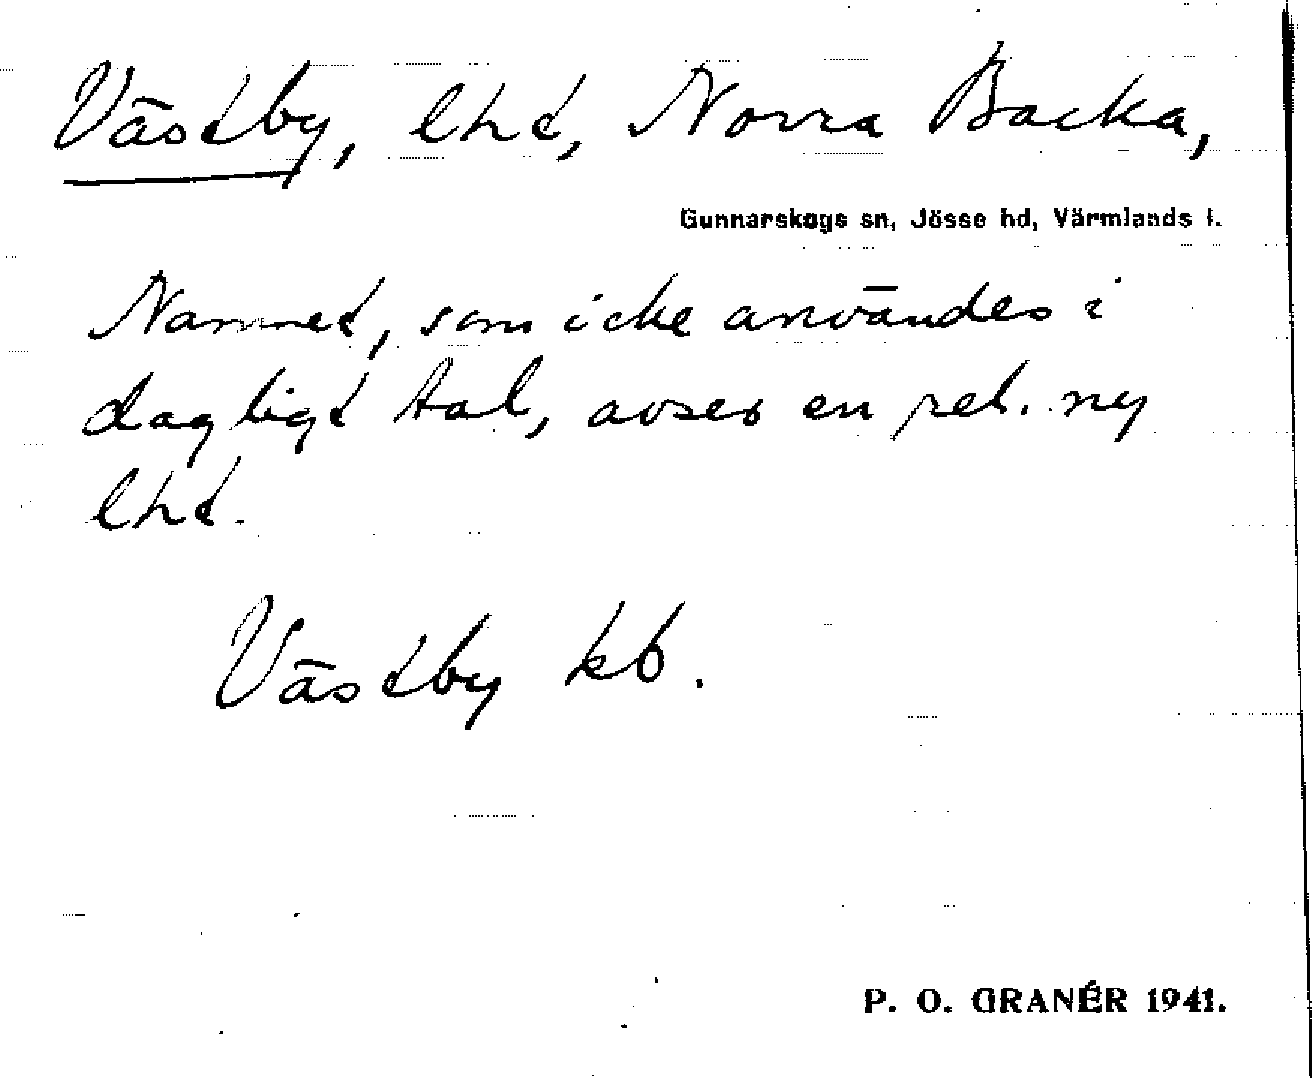 Västby, lht, Norra Backa,
Gunnarskogs sn, Jösse hd, Värmlands l.
Namnet, som icke användes i
dagligt tal, avser en rel. ny
lht.
Västby kb.
P. O. GRANÉR 1941.